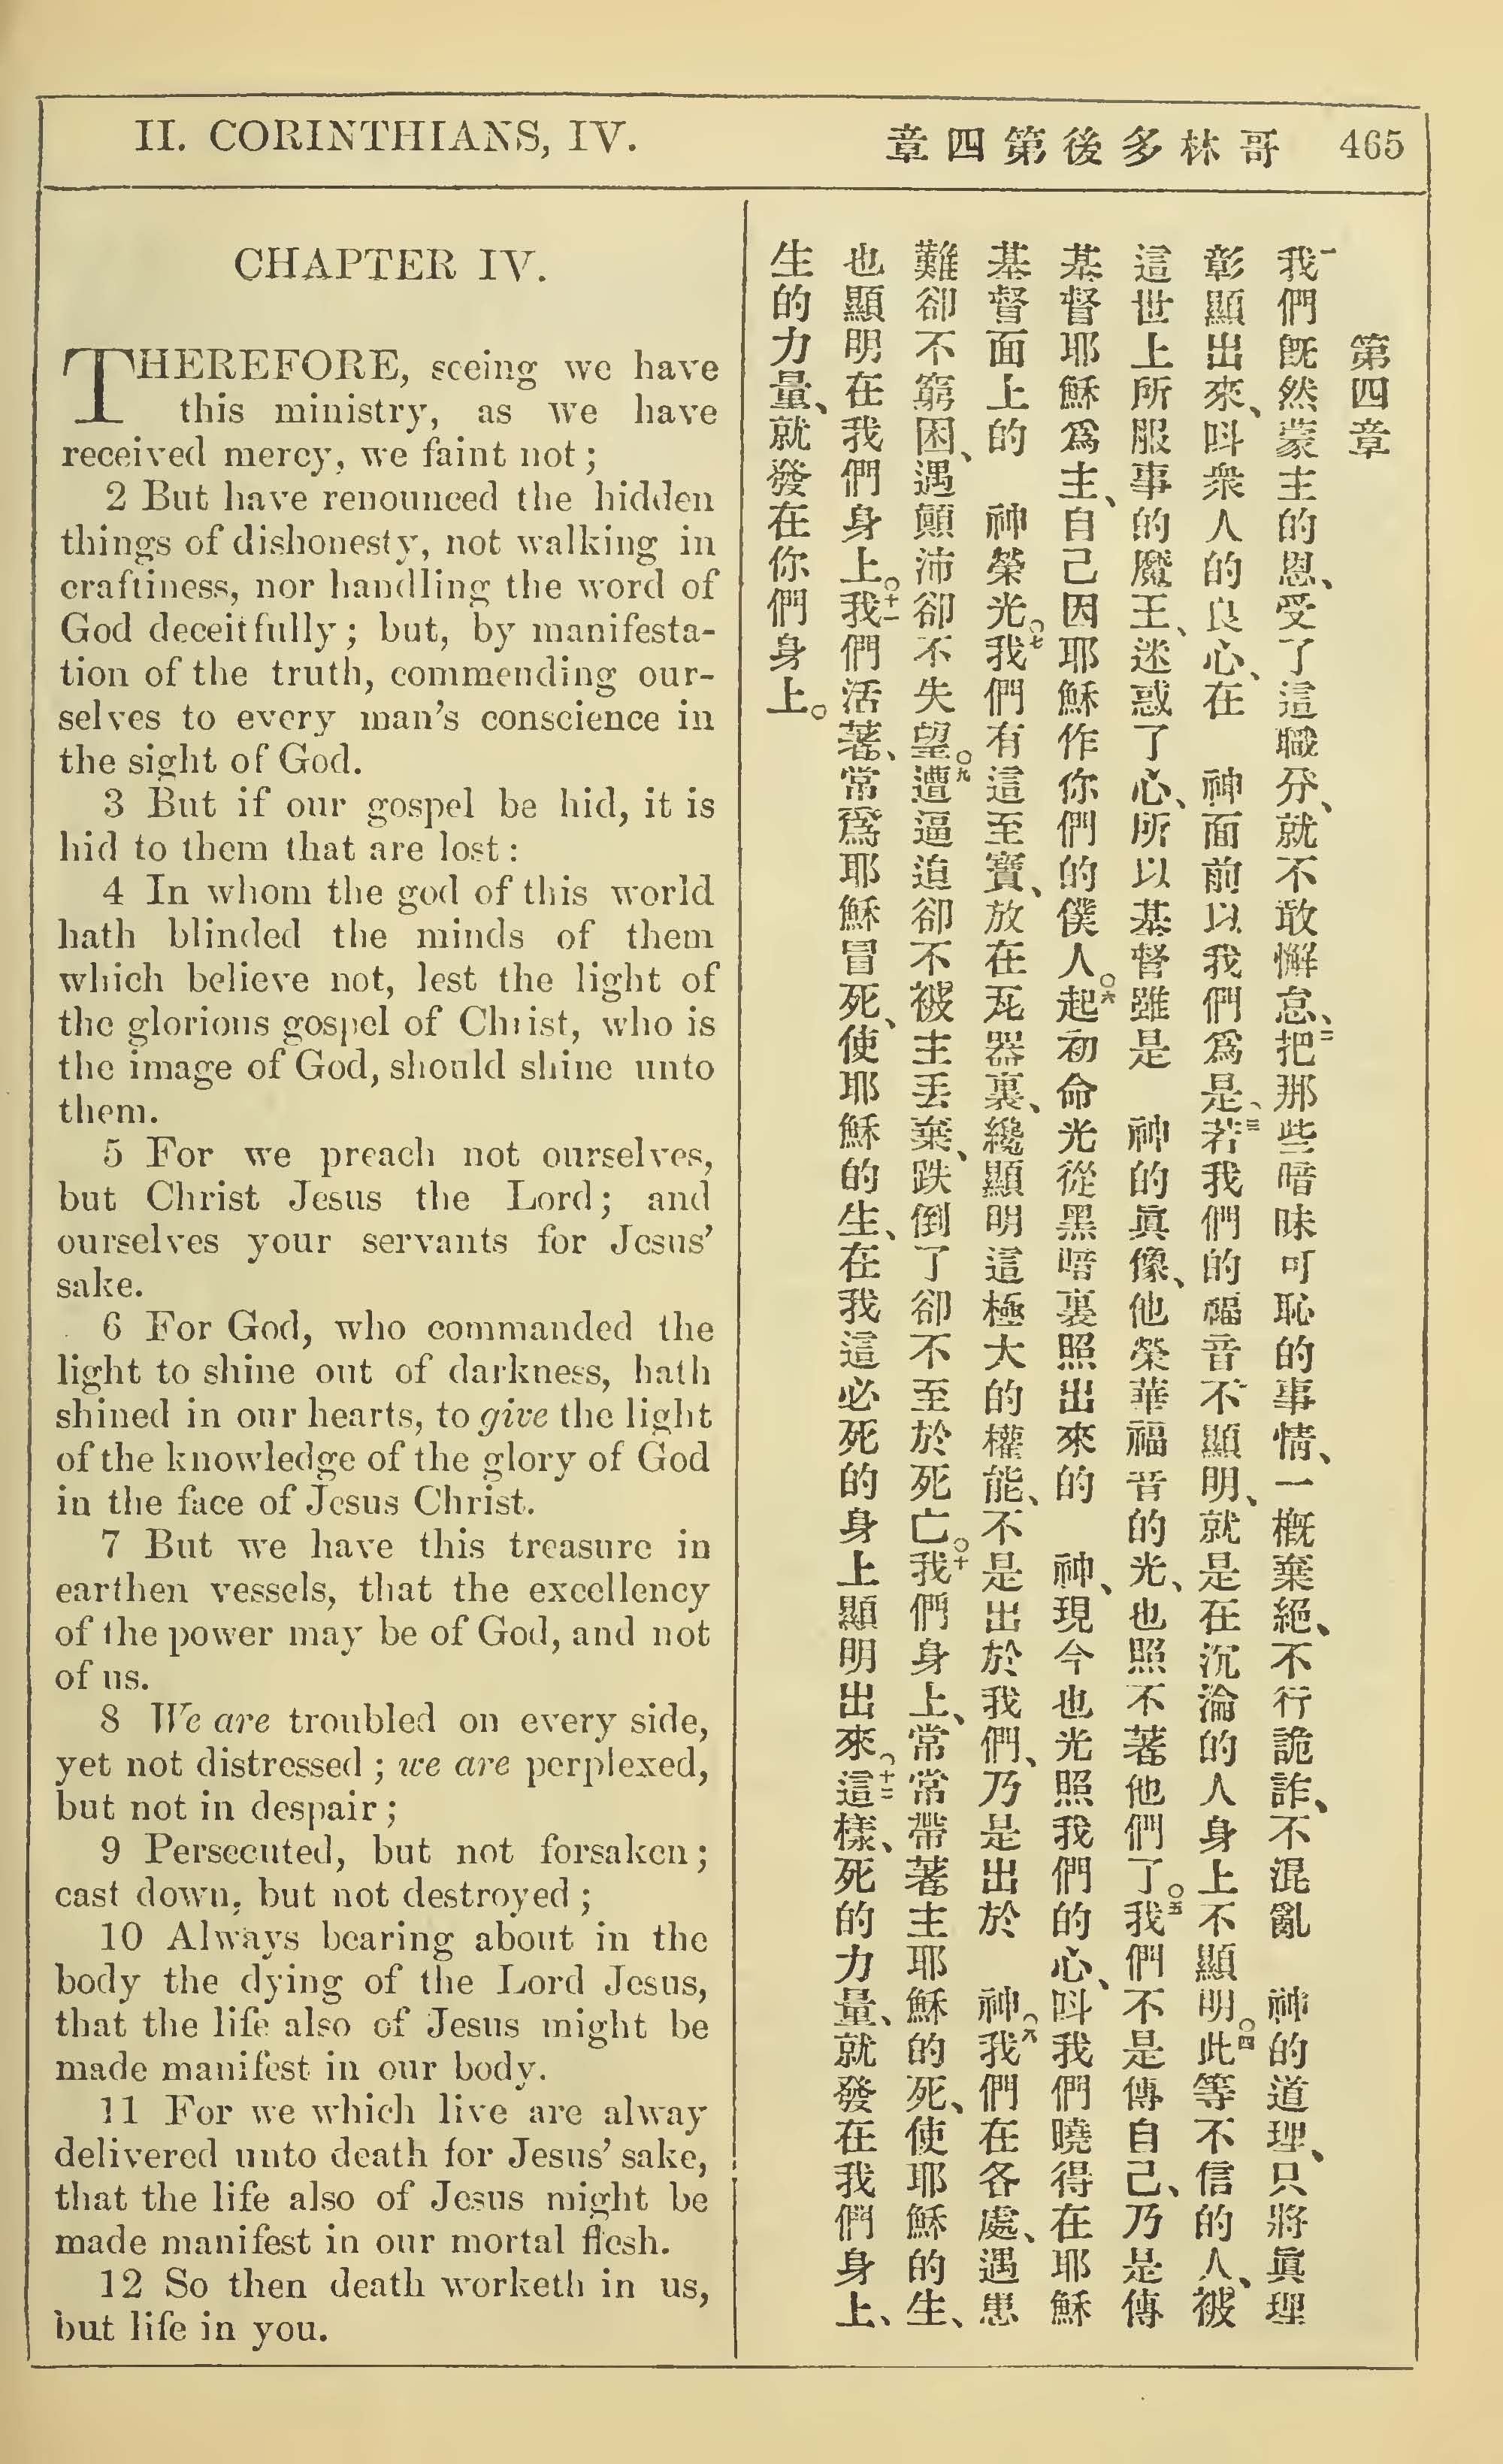 II. CORINTHIANS, IV.
章四第後多林哥 465
CHAPTER IV.
THEREFORE, seeing we have
this ministry, as we have
received mercy, we faint not;
2 But have renounced the hidden
things of dishonesty, not walking in
craftiness, nor handling the word of
God deceitfully; but, by manifesta-
tion of the truth, commending our-
selves to every man's conscience in
the sight of God.
3 But if our gospel be hid, it is
hid to them that are lost:
4 In whom the god of this world
hath blinded the minds of them
which believe not, lest the light of
the glorious gospel of Christ, who is
the image of God, should shine unto
them.
5 For we preach not ourselves,
but Christ Jesus the Lord; and
ourselves your servants for Jesus'
sake.
6 For God, who commanded the
light to shine out of darkness, hath
shined in our hearts, to give the light
of the knowledge of the glory of God
in the face of Jesus Christ.
7 But we have this treasure in
earthen vessels, that the excellency
of the power may be of God, and not
of us.
8 We are troubled on every side,
yet not distressed; we are perplexed,
but not in despair;
9 Persecuted, but not forsaken;
cast down, but not destroyed;
10 Always bearing about in the
body the dying of the Lord Jesus,
that the life also of Jesus might be
made manifest in our body.
11 For we which live are alway
delivered unto death for Jesus' sake,
that the life also of Jesus might be
made manifest in our mortal flesh.
12 So then death worketh in us,
but life in you.
第四章
一我們旣然蒙主的恩、受了這職分、就不敢懈怠、二把那些暗昧可恥的事情、一槪棄絕、不行詭詐、不混亂　神的道理、只將眞理
彰顯出來、呌衆人的良心、在　神面前以我們爲是、三若我們的福音不顯明、就是在沉淪的人身上不顯明。四此等不信的人、被
這世上所服事的魔王、迷惑了心、所以基督雖是　神的眞像、他榮華福音的光、也照不著他們了。五我們不是傳自己、乃是傳
基督耶穌爲主、自己因耶穌作你們的僕人。六起初命光從黑暗裏照出來的　神、現今也光照我們的心、呌我們曉得在耶穌
基督面上的　神榮光。七我們有這至寶、放在瓦器裏、纔顯明這極大的權能、不是出於我們、乃是出於　神。八我們在各處、遇患
難卻不窮困、遇顚沛卻不失望。九遭逼迫卻不被主丟棄、跌倒了卻不至於死亡。十我們身上、常常帶著主耶穌的死、使耶穌的生、
也顯明在我們身上。十一我們活著、常爲耶穌冒死、使耶穌的生、在我這必死的身上顯明出來。十二這樣、死的力量、就發在我們身上、
生的力量、就發在你們身上。